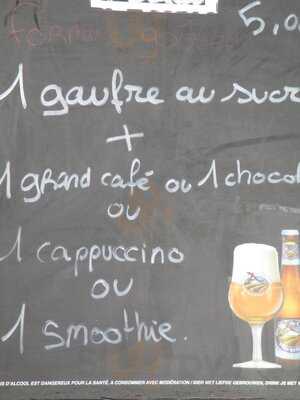 5,0
1 gaufre au sucr
+
1 grand café ou 1 chocol
ou
1 cappuccino
ou
1 smoothie.
S D'ALCOOL EST DANGEREUX POUR LA SANTÉ, A CONSOMMER AVEC MODÉRATION / BIER MET LIEFDE GEBROUWEN, DRINK JE MET